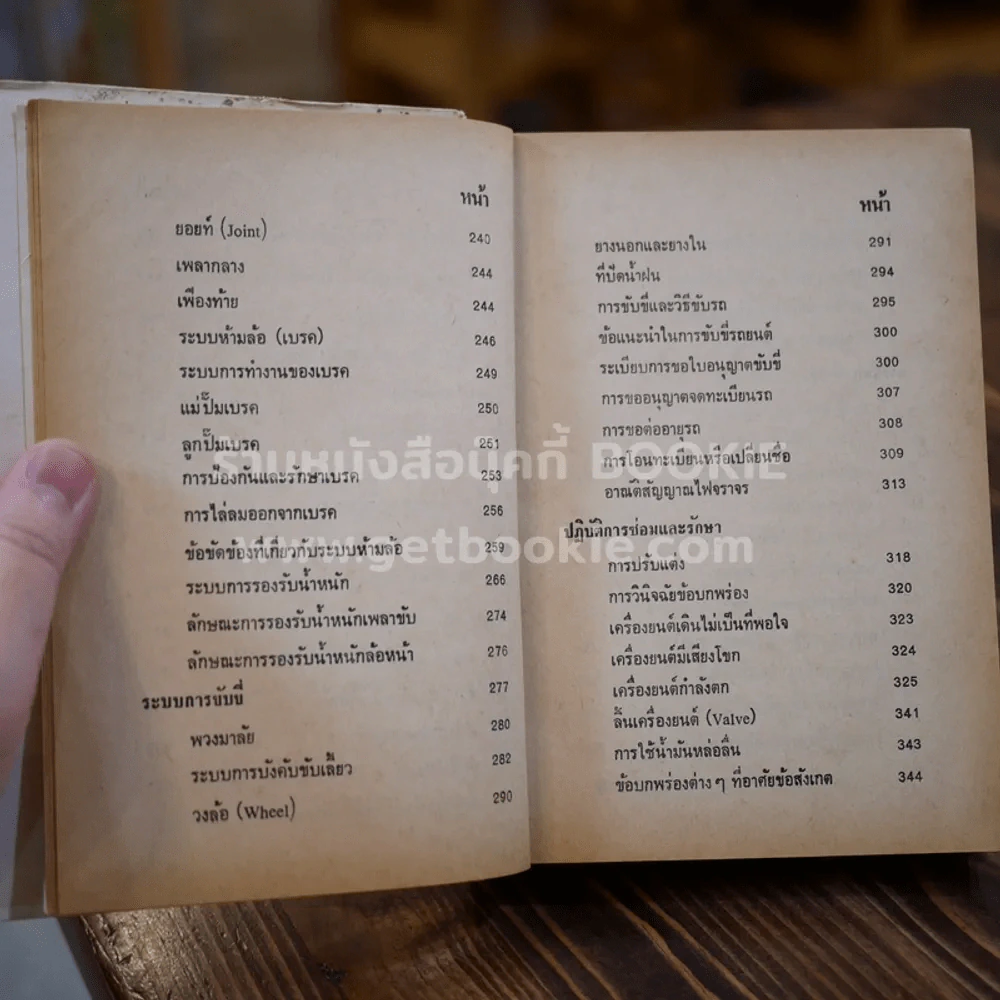 หน้า
ยอยท์ (Joint) 240
เพลากลาง 244
เฟืองท้าย 244
ระบบห้ามล้อ (เบรค) 246
ระบบการทำงานของเบรค 249
แม่ปั๊มเบรค 250
ลูกปั๊มเบรค 251
การป้องกันและรักษาเบรค 253
การไล่ลมออกจากเบรค 256
ข้อขัดข้องที่เกี่ยวกับระบบห้ามล้อ 259
ระบบการรองรับน้ำหนัก 266
ลักษณะการรองรับน้ำหนักเพลาขับ 274
ลักษณะการรองรับน้ำหนักล้อหน้า 276
ระบบการขับขี่ 277
พวงมาลัย 280
ระบบการบังคับขับเลี้ยว 282
วงล้อ (Wheel) 290
หน้า
ยางนอกและยางใน 291
ที่ปัดน้ำฝน 294
การขับขี่และวิธีขับรถ 295
ข้อแนะนำในการขับขี่รถยนต์ 300
ระเบียบการขอใบอนุญาตขับขี่ 300
การขออนุญาตจดทะเบียนรถ 307
การขอต่ออายุรถ 308
การโอนทะเบียนหรือเปลี่ยนชื่อ 309
อาณัติสัญญาณไฟจราจร 313
ปฏิบัติการซ่อมและรักษา
การปรับแต่ง 318
การวินิจฉัยข้อบกพร่อง 320
เครื่องยนต์เดินไม่เป็นที่พอใจ 323
เครื่องยนต์มีเสียงโขก 324
เครื่องยนต์กำลังตก 325
ลิ้นเครื่องยนต์ (Valve) 341
การใช้น้ำมันหล่อลื่น 343
ข้อบกพร่องต่างๆ ที่อาศัยข้อสังเกต 344
ร้านหนังสือบุคกี้ BOOKIE
www.getbookie.com